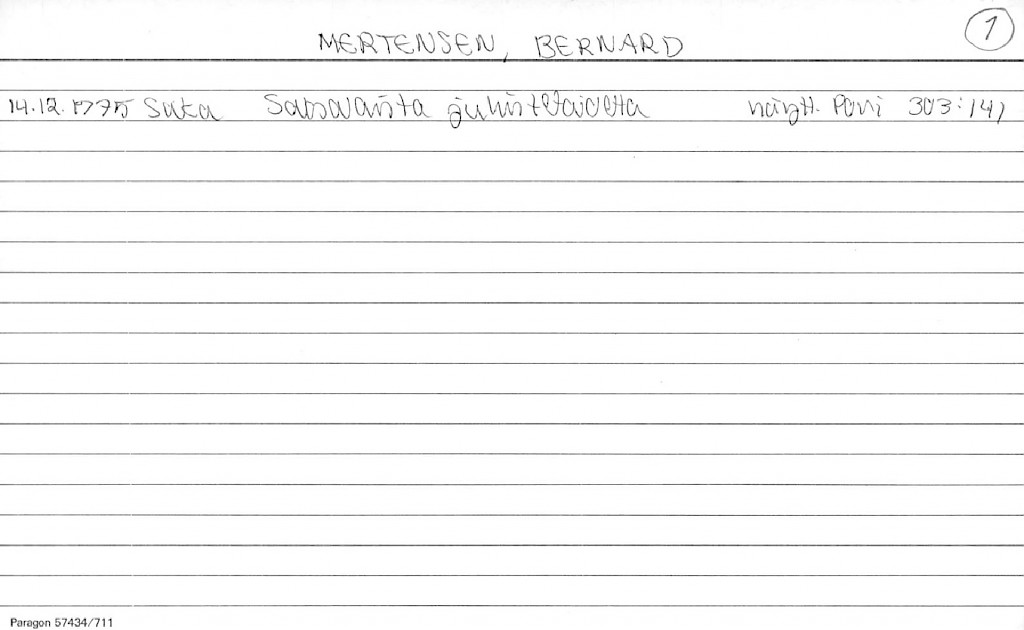 1
MERTENSEN, BERNARD
14.12.1775 Saksa Saksalaista julistetaidetta näytt. Pori 303:141
Paragon 57434/711